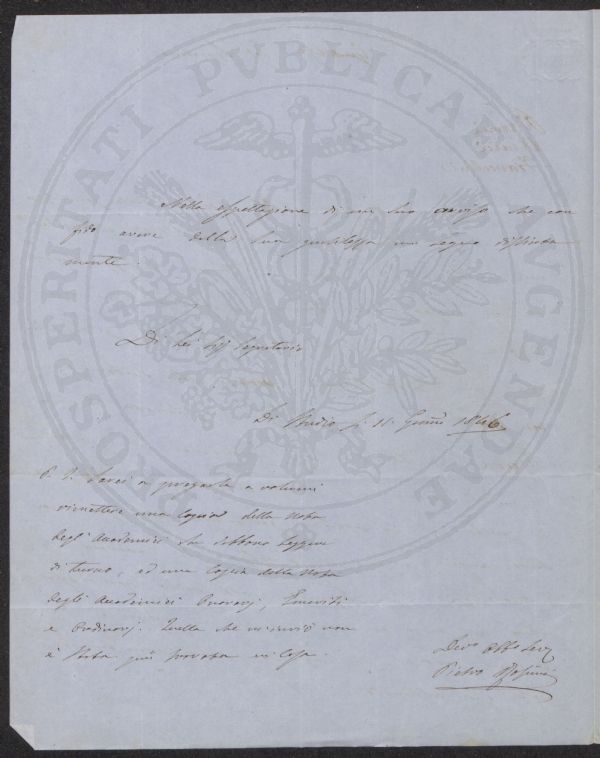 PROSPERITATI PVBLICAE AVGENDAE
Nella espettazione di un suo avviso che con
fido avere dalla sua gentilezza mi segno distinta
mente.
Di Lei Sig Segretario
Di Studio li 11. Genn 1846
P. S. Sarei a pregarla a volermi
rimettere una Copia della Nota
degli Accademici che debbono leggere
di turno, ed una Copia della Nota
degli Accademici Onorarj, Emeriti
e Ordinarj. Quella che mi inviò non
è stata più trovata in Casa.
Dev Obb Serv
Pietro